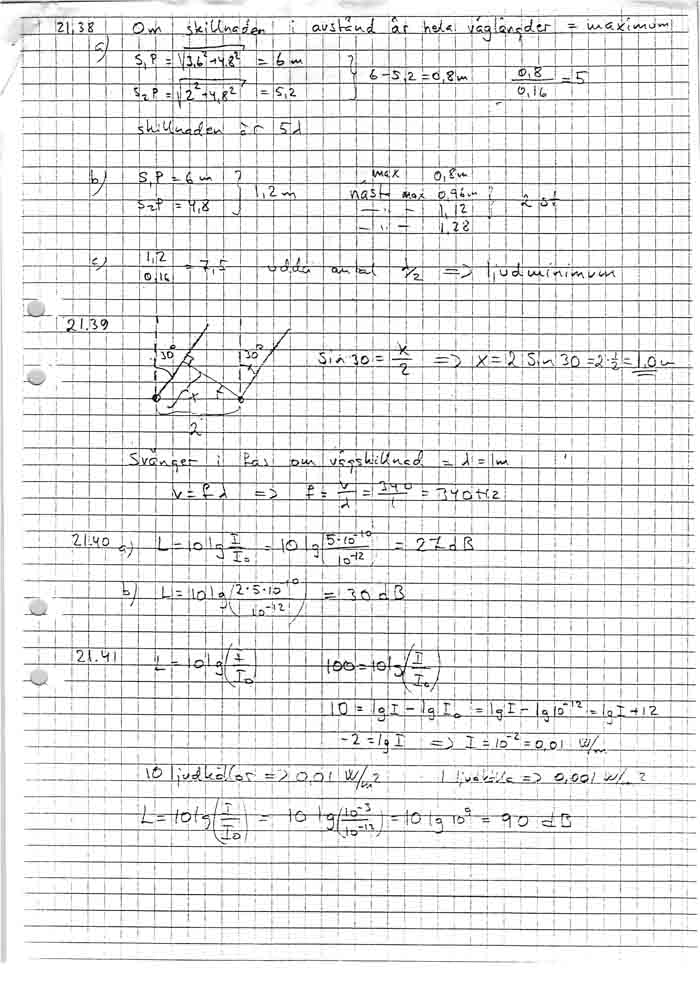 21.38 Om skillnaden i avstånd är hela våglängder = maximum
a) S₁P = √(3,6² + 4,8²) = 6 m
S₂P = √(2² + 4,8²) = 5,2 } 6 - 5,2 = 0,8 m 0,8/0,16 = 5
skillnaden är 5λ
b) S₁P = 6 m
S₂P = 4,8 } 1,2 m
max 0,8 m
näst max 0,96 m
— " — 1,12
— " — 1,28
2 st
c) 1,2/0,16 = 7,5 udda antal λ/2 => ljudminimum
21.39
30° 30°
x
2
Sin 30 = x/2 => x = 2 Sin 30 = 2·½ = 1.0 m
Svänger i fas om vägskillnad = λ = 1m
v = fλ => f = v/λ = 340/1 = 340 Hz
21.40 a) L = 10 lg I/I₀ = 10 lg(5·10⁻¹⁰/10⁻¹²) = 27 dB
b) L = 10 lg(2·5·10⁻¹⁰/10⁻¹²) = 30 dB
21.41 L = 10 lg(I/I₀) 100 = 10 lg(I/I₀)
10 = lg I - lg I₀ = lg I - lg 10⁻¹² = lg I + 12
-2 = lg I => I = 10⁻² = 0,01 W/m
10 ljudkällor => 0,01 W/m² 1 ljudkälla => 0,001 W/m²
L = 10 lg(I/I₀) = 10 lg(10⁻³/10⁻¹²) = 10 lg 10⁹ = 90 dB